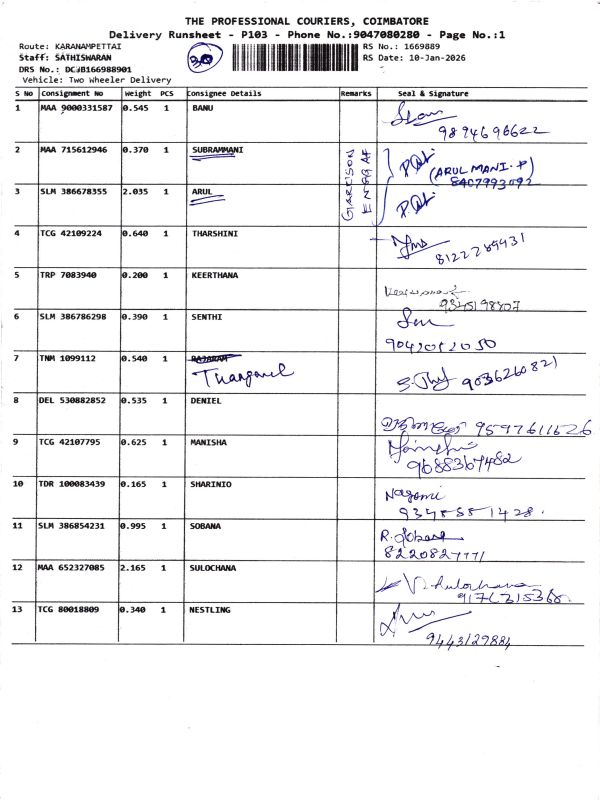 THE PROFESSIONAL COURIERS, COIMBATORE
Delivery Runsheet - P103 - Phone No.:9047080280 - Page No.:1
Route: KARANAMPETTAI
RS No.: 1669889
Staff: SATHISWARAN
30
RS Date: 10-Jan-2026
DRS No.: DCWB166988901
Vehicle: Two Wheeler Delivery
S No Consignment No Weight PCS Consignee Details Remarks Seal & Signature
1 MAA 9000331587 0.545 1 BANU
9894696622
2 MAA 715612946 0.370 1 SUBRAMMANI
(ARUL MANI. P)
8407993092
3 SLM 386678355 2.035 1 ARUL
GARRISON
4 TCG 42109224 0.640 1 THARSHINI
8122289431
5 TRP 7083940 0.200 1 KEERTHANA
9345198807
6 SLM 386786298 0.390 1 SENTHI
9042012050
7 TNM 1099112 0.540 1 RAJARAM
Thangavel
9036260821
8 DEL 530882852 0.535 1 DENIEL
9597611626
9 TCG 42107795 0.625 1 MANISHA
9688367482
10 TDR 100083439 0.165 1 SHARINIO
Nagomi
11 SLM 386854231 0.995 1 SOBANA
8220827771
12 MAA 652327085 2.165 1 SULOCHANA
13 TCG 80018809 0.340 1 NESTLING
9443129884